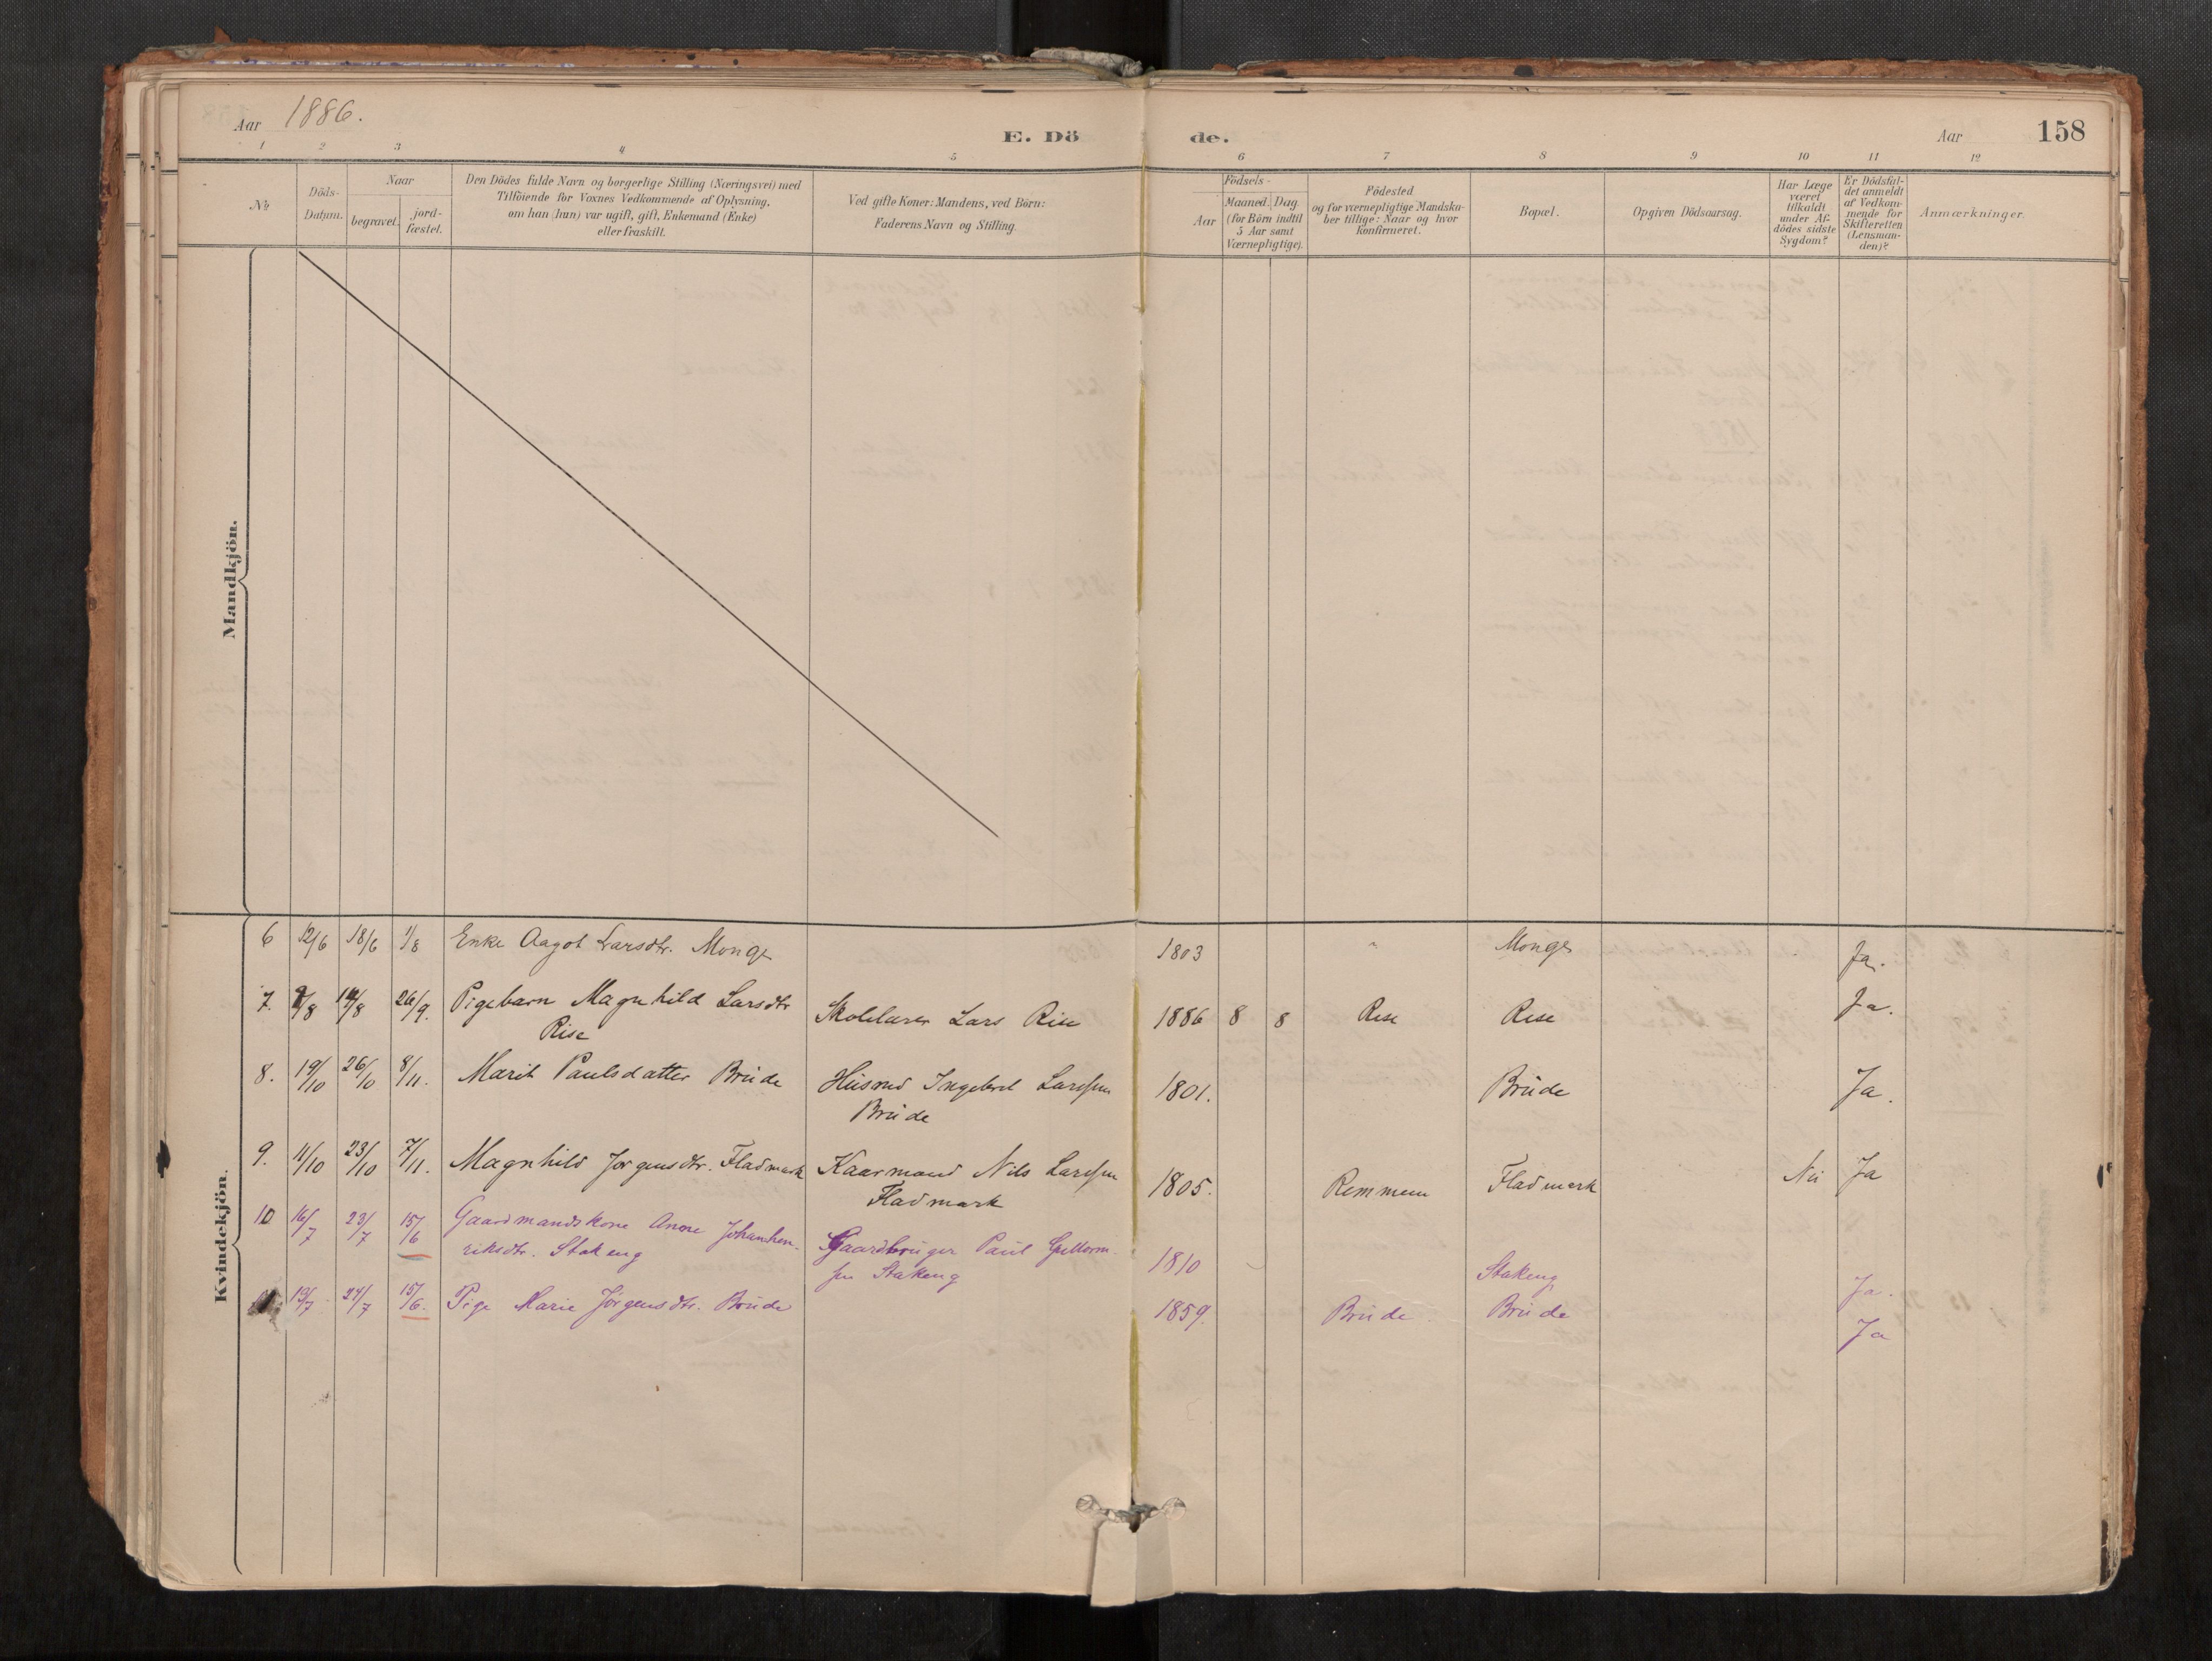 Aar 1886.
E. Döde.
Aar 158
1 2 3 4 5 6 7 8 9 10 11 12
No
Döds-Datum.
Naar
begravet.
jord-fæstet.
Den Dödes fulde Navn og borgerlige Stilling (Næringsvei) med
Tilföiende for Voxnes Vedkommende af Oplysning,
om han (hun) var ugift, gift, Enkemand (Enke)
eller fraskilt.
Ved gifte Koner: Mandens, ved Börn:
Faderens Navn og Stilling.
Födsels-
Aar
Maaned. Dag.
(for Börn indtil
5 Aar samt
Værnepligtige).
Födested
og for værnepligtige Mandska-
ber tillige: Naar og hvor
konfirmeret.
Bopæl.
Opgiven Dödsaarsag.
Har Læge
været
tilkaldt
under Af-
dödes sidste
Sygdom?
Er Dödsfal-
det anmeldt
af Vedkom-
mende for
Skifteretten
(Lensman-
den)?
Anmærkninger.
Mandkjön.
Kvindekjön.
6 12/6 18/6 1/8 Enke Aagot Larsdtr. Monge 1803 " Monge Ja.
7. 9/8 14/8 26/9. Pigebarn Magnhild Larsdtr Skolelærer Lars Rise 1886 8 8 Rise Rise Ja.
Rise
8. 19/10 26/10 8/11. Marit Paulsdatter Brude Husmd Ingebret Larssen 1801. Brude Ja.
Brude
9. 11/10 23/10 7/11. Magnhild Jørgensdtr. Fladmark Kaarmand Nils Larssen 1805. Remmem Fladmark Nei Ja
Fladmark
10 16/7 23/7 15/6 Gaardmandskone Anne Johanhen- Gaardbruger Paul Guttorm- 1810 Stakeng Ja.
riksdtr. Stakeng sen Stakeng
19/7 24/7 15/6. Pige Marie Jörgensdtr. Brude 1859. Brude. Brude Ja